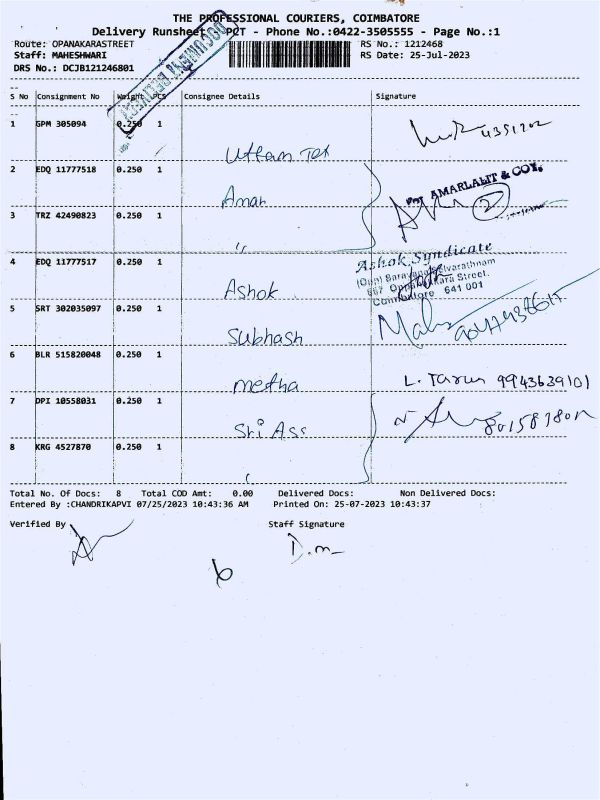 THE PROFESSIONAL COURIERS, COIMBATORE
Delivery Runsheet - PCT - Phone No.:0422-3505555 - Page No.:1
Route: OPANAKARASTREET RS No.: 1212468
Staff: MAHESHWARI RS Date: 25-Jul-2023
DRS No.: DCJB121246801
DOCUMENT DELIVERED
S No Consignment No Weight PCS Consignee Details Signature
1 GPM 305094 0.250 1
Uttam Tex
2 EDQ 11777518 0.250 1
Aman
For AMARLALIT & COY.
2
3 TRZ 42490823 0.250 1
"
4 EDQ 11777517 0.250 1
Ashok
Ashok Syndicate
667 Oppanakkara Street.
Coimbatore 641 001
5 SRT 302035097 0.250 1
Subhash
6 BLR 515820048 0.250 1
metha L. Tarun 9943639101
7 DPI 10558031 0.250 1
Sri Ass
8 KRG 4527870 0.250 1
Total No. Of Docs: 8 Total COD Amt: 0.00 Delivered Docs: Non Delivered Docs:
Entered By :CHANDRIKAPVI 07/25/2023 10:43:36 AM Printed On: 25-07-2023 10:43:37
Verified By Staff Signature
D.m
6